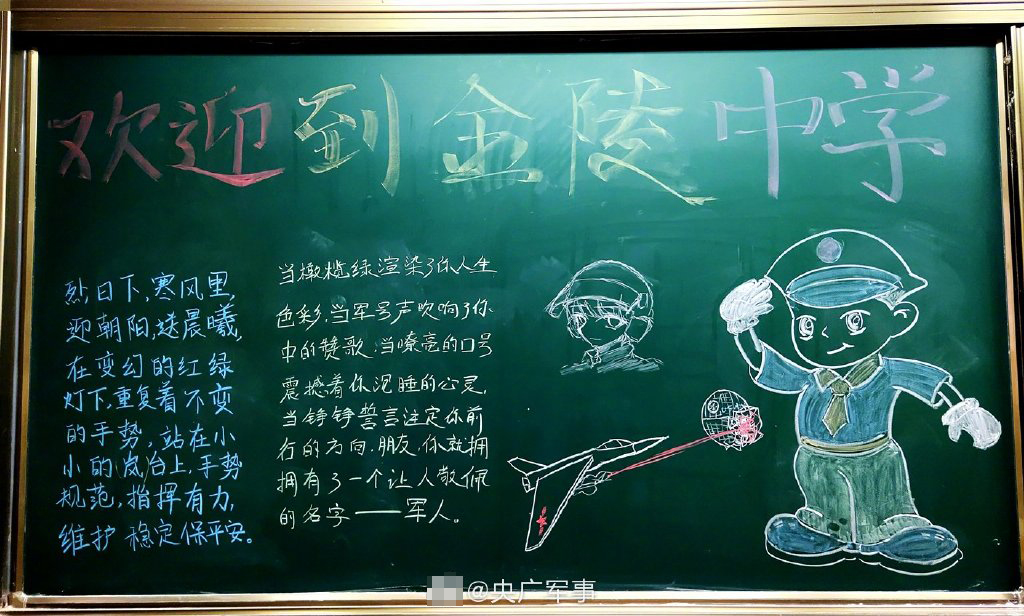 欢迎到金陵中学
烈日下,寒风里,
迎朝阳,送晨曦,
在变幻的红绿
灯下,重复着不变
的手势,站在小
小的岗台上,手势
规范,指挥有力,
维护稳定保平安。
当橄榄绿渲染了你人生
色彩,当军号声吹响了你
中的赞歌,当嘹亮的口号
震撼着你沉睡的心灵,
当铮铮誓言注定你前
行的方向,朋友,你就拥
拥有了一个让人敬佩
的名字——军人。
@央广军事